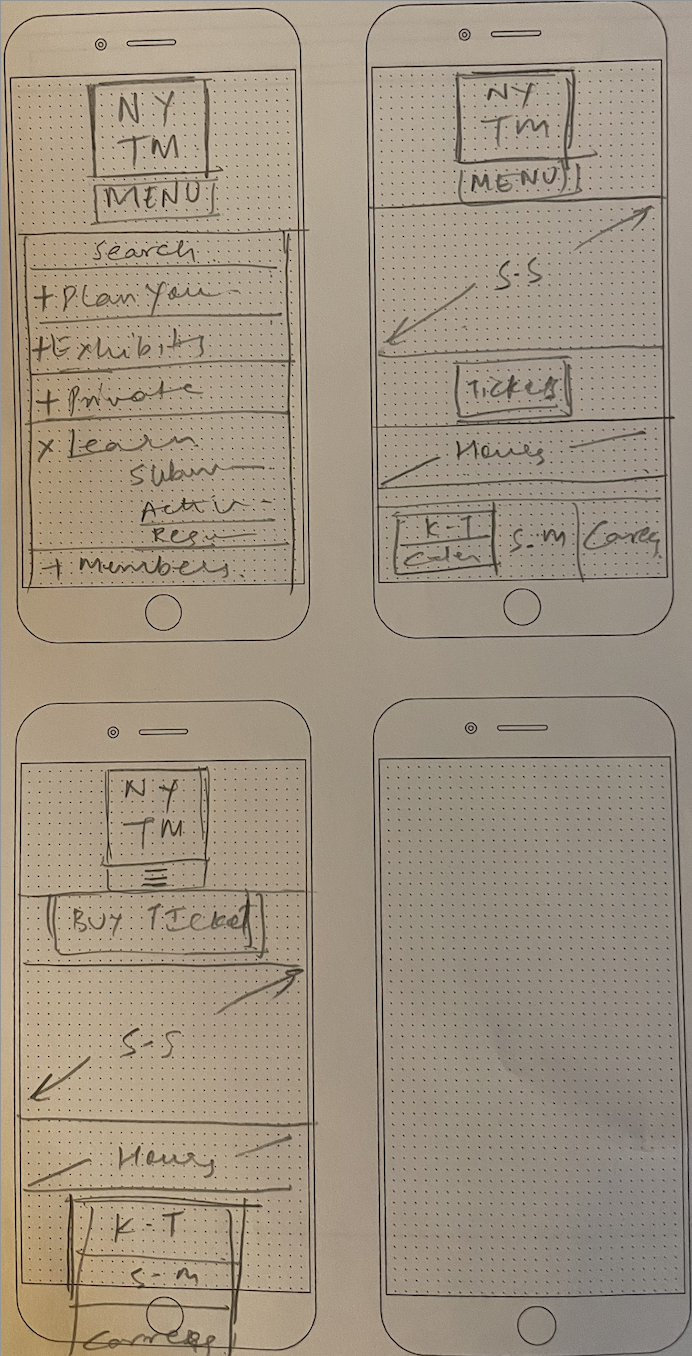 NY
TM
MENU
Search
+ Plan You
+ Exhibits
+ Private
x Learn
+ Members
NY
TM
MENU
S-S
Tickets
Hours
K-T
S-M
NY
TM
BUY TIcket
S-S
Hours
K-T
S-M
Careers